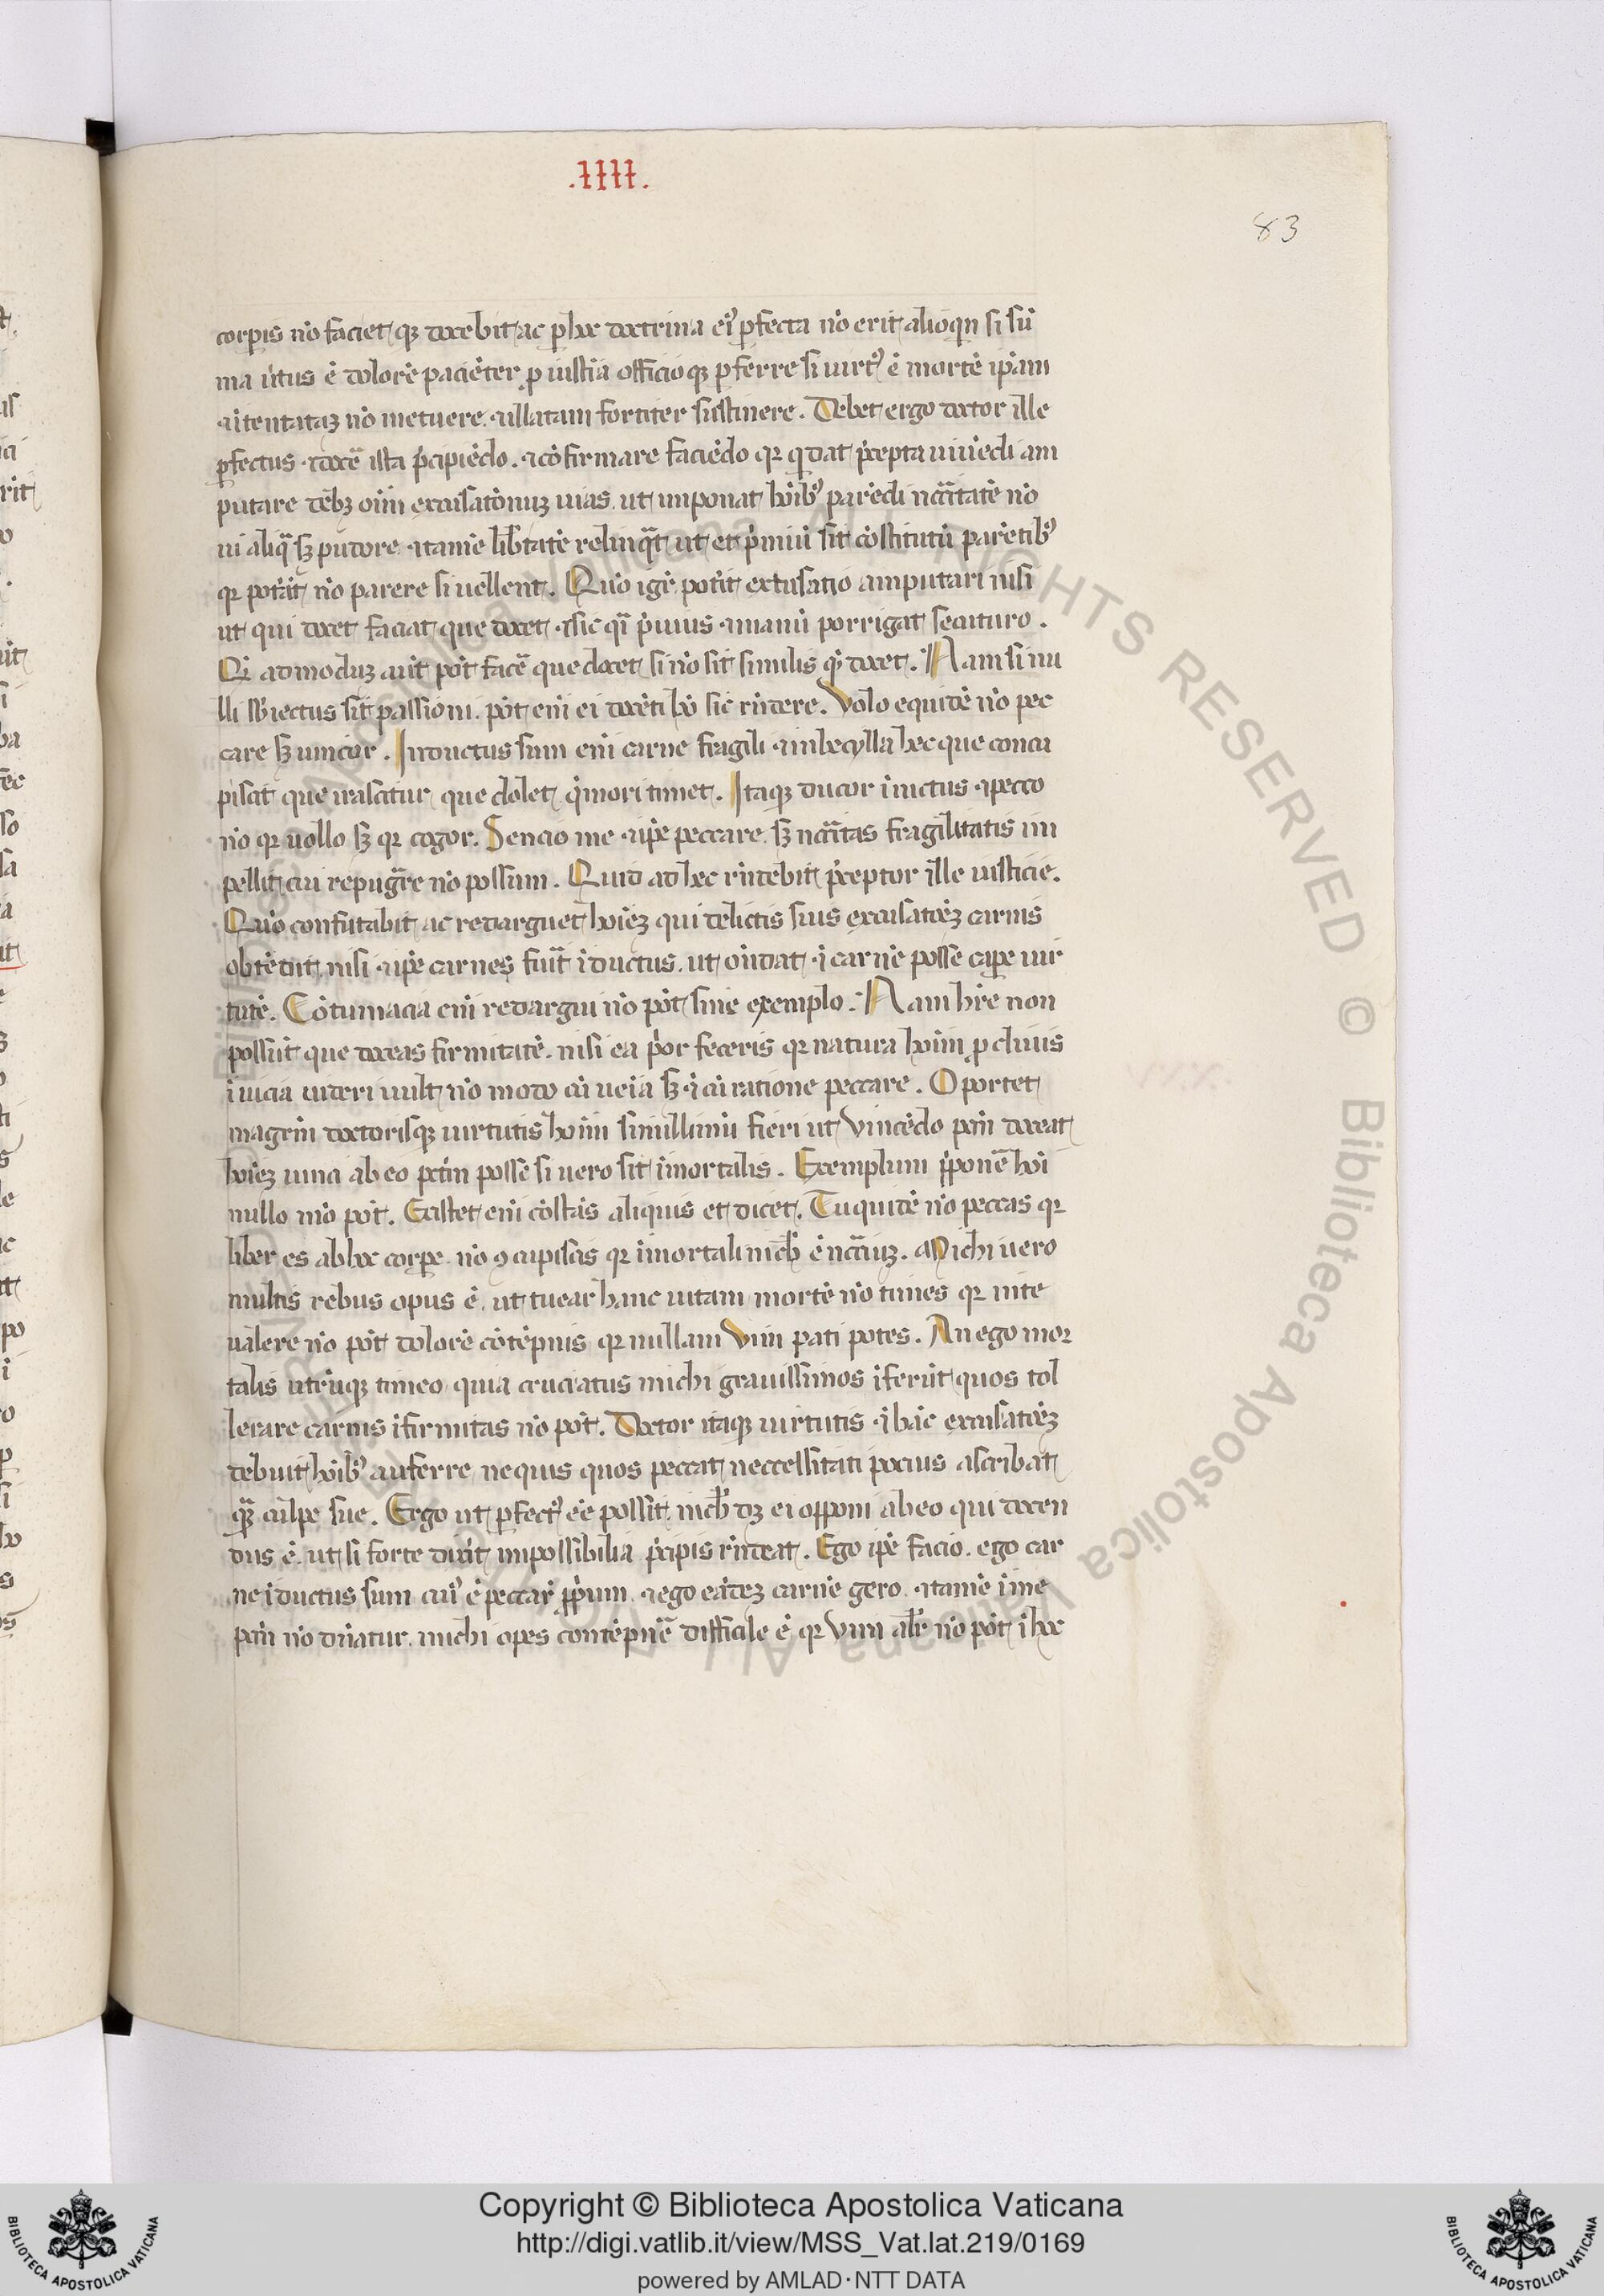 .IIII.
83
corpis nō faciet q̄ docebit ac p hoc doctrina eiꝰ pfecta nō erit alioqn si sū
ma ūtus ē dolorē paciēter p iusticia officioqꝫ pferre si uirtꝰ ē mortē ipam
intentataꝫ nō metuere illatam fortiter sustinere. Debet ergo doctor ille
pfectus docē ista pcipiēdo. cōfirmare faciēdo qr q dat pcepta uiuēdi am
putare debꝫ oīm excusatōnuꝫ uias. ut imponat hoībꝰ parēdi ncītatē nō
ui aliq sꝫ pudore tamē libtatē relinqt ut et pmiū sit cōstitutū parētibꝰ
qr potāt nō parere si uellent. Quō igr potit excusatio amputari nisi
ut qui docet faciat que docet sic qi puius manū porrigat secuturo.
Q admoduꝫ aūt pōt facē que docet si nō sit similis q docet. Nam si nu
lli sbiectus sit passioni. pōt enī ei docēti hō sic rndere. Volo equidē nō pec
care sꝫ uincor. Inductus sum enī carne fragili imbecylla hec que concu
piscit que irascitur que dolet q mori timet. Itaqꝫ ducor inuitus pecco
nō qr uollo sꝫ qr cogor. Sencio me ipē peccare sꝫ ncītas fragilitatis im
pellit cui repugre nō possum. Quid ad hec rndebit pceptor ille iusticie.
Quō confutabit ac redarguet hoieꝫ qui delictis suis excusatōeꝫ carnis
obtēdit nisi ipē carneꝫ fuit iductus. ut ondat i carnē posse cape uir
tutē. Cōtumacia enī redargui nō pōt sine exemplo. Nam hre non
possūt que doceas firmitatē. nisi ea pōr feceris qr natura hoim pcliuis
i uicia uideri uult nō modo cū uenia sꝫ cū ratione peccare. Oportet
magrm doctorisqꝫ uirtutis hoim simillimū fieri ut vincēdo pctm doceat
hoieꝫ uinci ab eo pctm posse si uero sit īmortalis. Exemplum pponē hoi
nullo mō pōt. Existet enī cōstās aliquis et dicet. Tu quidē nō peccas qr
liber es ab hoc corpe nō ꝯcupiscis qr īmortali nich ē ncīuꝫ. Michi uero
multis rebus opus ē. ut tuear hanc uitam mortē nō times qr in te
ualere nō pōt dolorē cōtēpnis qr nullam vim pati potes. An ego mor
talis utrūqꝫ timeo quia cruciatus michi grauissimos iferūt quos tol
lerare carnis ifirmitas nō pōt. Doctor itaqꝫ uirtutis hāc excusatōeꝫ
debuit hoibꝰ auferre ne quis quos peccat neccessitati pocius ascribat
q culpe sue. Ergo ut pfectꝰ eē possit nich dꝫ ei opponi ab eo qui docen
dus ē. ut si forte dixit impossibilia pcipis rndeat. Ego ipē facio. ego car
ne iductus sum cuiꝰ ē peccar ppum. ego eādeꝫ carnē gero. tamē i me
pctm nō dnatur. michi opes contēpnē difficile ē qr vim alr nō pōt i hoc
Copyright © Biblioteca Apostolica Vaticana
http://digi.vatlib.it/view/MSS_Vat.lat.219/0169
powered by AMLAD·NTT DATA